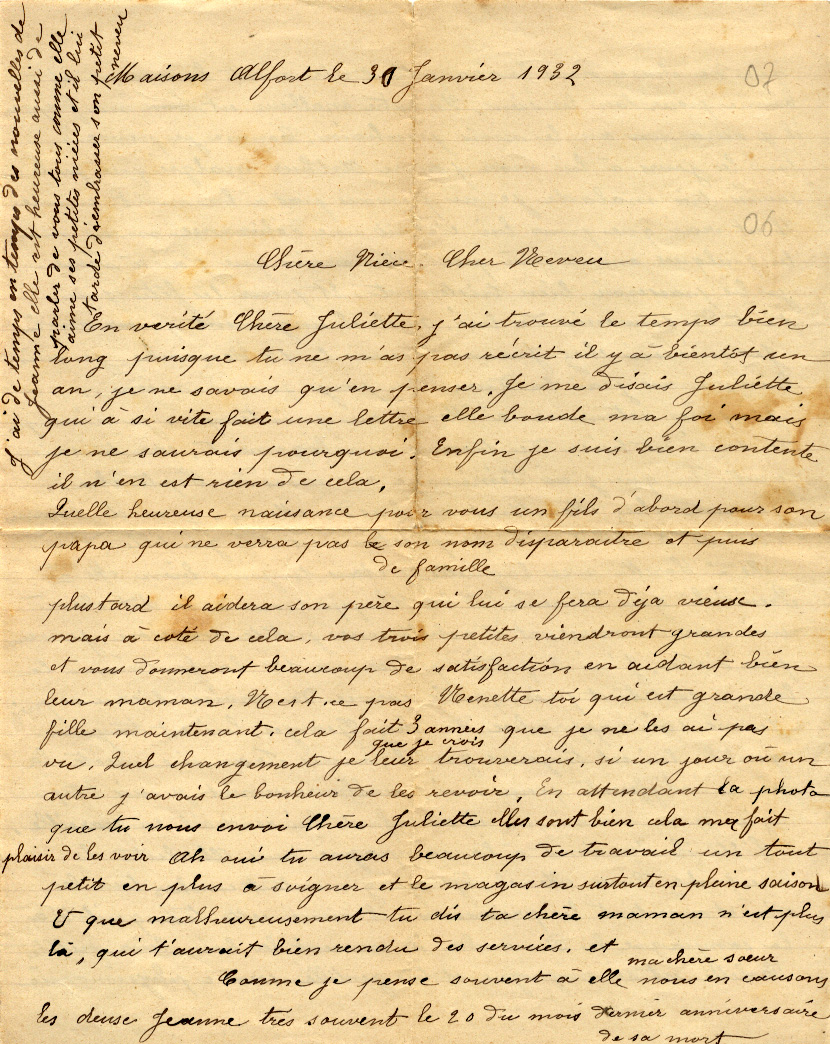 Maisons Alfort le 30 Janvier 1932
07
06
Chère Nièce. Cher Neveu
En verité Chère Juliette, j'ai trouvé le temps bien
long puisque tu ne m'as pas réécrit il y à bientôt un
an, je ne savais qu'en penser. Je me disais Juliette
qui à si vite fait une lettre elle boude ma foi mais
je ne saurais pourquoi. Enfin je suis bien contente
il n'en est rien de cela,
Quelle heureuse naisance pour vous un fils d'abord pour son
papa qui ne verra pas le son nom disparaitre et puis
de famille
plustard il aidera son père qui lui se fera déja vieuse.
mais à coté de cela, vos trois petites viendront grandes
et vous donneront beaucoup de satisfaction en aidant bien
leur maman. Nest-ce pas Nenette toi qui est grande
fille maintenant. cela fait 3 années que je ne les ai pas
que je crois
vu. Quel changement je leur trouverais, si un jour où un
autre j'avais le bonheur de les revoir. En attendant la photo
que tu nous envoi Chère Juliette elles sont bien cela me fait
plaisir de les voir Ah oui tu auras beaucoup de travail un tout
petit en plus à soigner et le magasin surtout en pleine saison
que malheureusement tu dis ta chère maman n'est plus
là, qui t'aurait bien rendu des services. et
ma chère soeur
Comme je pense souvent à elle nous en causons
les deuse Jeanne très souvent le 20 du mois dernier anniversaire
de sa mort
J'ai de temps en temps des nouvelles de
Jeanne elle est heureuse aussi de
parler de vous tous comme elle
aime ses petites nièces et il lui
tarde d'embrasser son petit
neveu